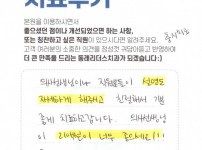 치료후기
본원을 이용하시면서
좋으셨던 점이나 개선되었으면 하는 사항,
또는 칭찬하고 싶은 직원이 있으시다면 알려주세요.
고객 여러분의 소중한 의견을 경청하여
더 큰 만족을 드리는 동래리더스치과가 되겠습니다:)
의사선생님이나 직원들이 설명도
자세하게 해주고 친절해서 기분
좋게 치료하고갑니다. 의사선생님
이 너무 좋으세요!!